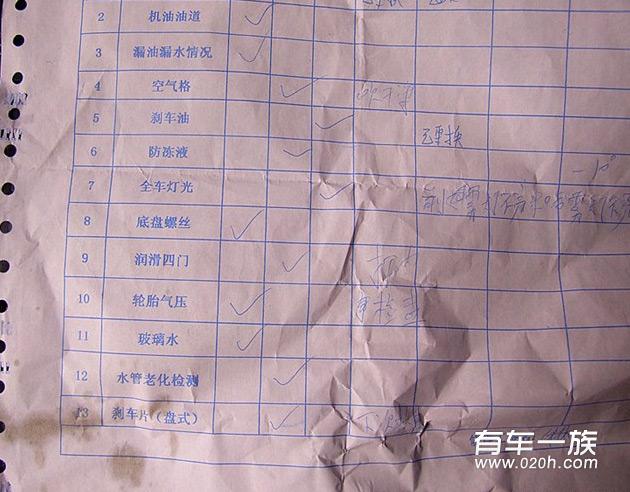 2 机油油道
3 漏油漏水情况
4 空气格
5 刹车油 已更换
6 防冻液 -10°
7 全车灯光
8 底盘螺丝
9 润滑四门
10 轮胎气压
11 玻璃水
12 水管老化检测
13 刹车片(盘式)
有车一族
www.020h.com